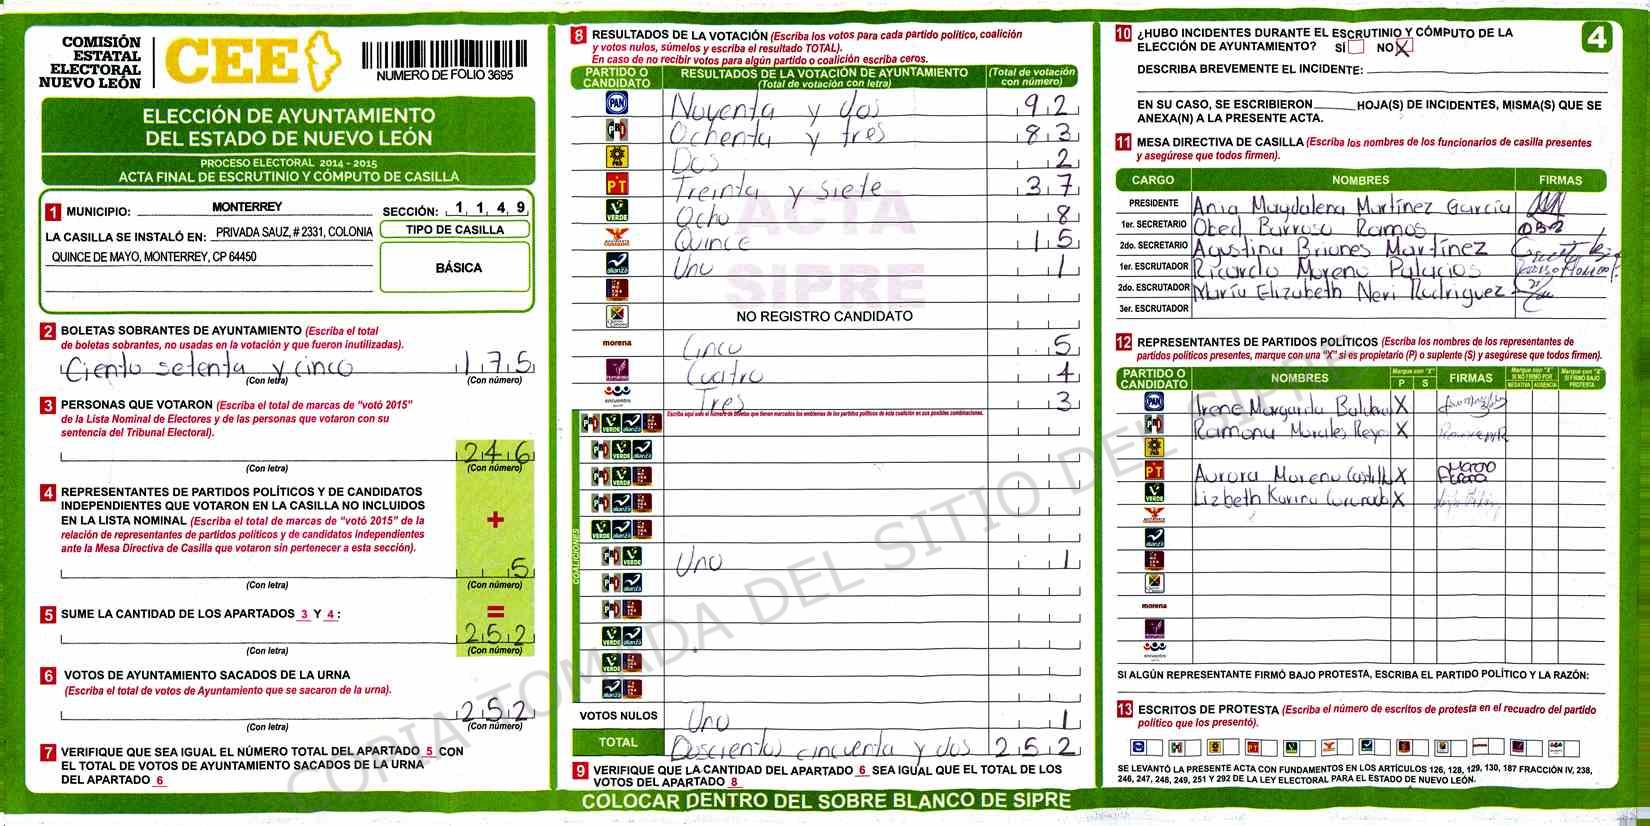 COMISIÓN
ESTATAL
ELECTORAL
NUEVO LEÓN
CEE
NUMERO DE FOLIO 3695
ELECCIÓN DE AYUNTAMIENTO
DEL ESTADO DE NUEVO LEÓN
PROCESO ELECTORAL 2014 - 2015
ACTA FINAL DE ESCRUTINIO Y CÓMPUTO DE CASILLA
1 MUNICIPIO: MONTERREY SECCIÓN: 1 1 4 9
LA CASILLA SE INSTALÓ EN: PRIVADA SAUZ, # 2331, COLONIA
QUINCE DE MAYO, MONTERREY, CP 64450
TIPO DE CASILLA
BÁSICA
2 BOLETAS SOBRANTES DE AYUNTAMIENTO (Escriba el total
de boletas sobrantes, no usadas en la votación y que fueron inutilizadas).
Ciento setenta y cinco 1 7 5
(Con letra) (Con número)
3 PERSONAS QUE VOTARON (Escriba el total de marcas de "votó 2015"
de la Lista Nominal de Electores y de las personas que votaron con su
sentencia del Tribunal Electoral).
2 4 6
(Con letra) (Con número)
4 REPRESENTANTES DE PARTIDOS POLÍTICOS Y DE CANDIDATOS
INDEPENDIENTES QUE VOTARON EN LA CASILLA NO INCLUIDOS
EN LA LISTA NOMINAL (Escriba el total de marcas de "votó 2015" de la
relación de representantes de partidos políticos y de candidatos independientes
ante la Mesa Directiva de Casilla que votaron sin pertenecer a esta sección).
+
5
(Con letra) (Con número)
5 SUME LA CANTIDAD DE LOS APARTADOS 3 Y 4 :
=
2 5 2
(Con letra) (Con número)
6 VOTOS DE AYUNTAMIENTO SACADOS DE LA URNA
(Escriba el total de votos de Ayuntamiento que se sacaron de la urna).
2 5 2
(Con letra) (Con número)
7 VERIFIQUE QUE SEA IGUAL EL NÚMERO TOTAL DEL APARTADO 5 CON
EL TOTAL DE VOTOS DE AYUNTAMIENTO SACADOS DE LA URNA
DEL APARTADO 6
8 RESULTADOS DE LA VOTACIÓN (Escriba los votos para cada partido político, coalición
y votos nulos, súmelos y escriba el resultado TOTAL).
En caso de no recibir votos para algún partido o coalición escriba ceros.
PARTIDO O CANDIDATO RESULTADOS DE LA VOTACIÓN DE AYUNTAMIENTO (Total de votación con letra) (Total de votación con número)
PAN Noventa y dos 9 2
PRI Ochenta y tres 8 3
PRD Dos 2
PT Treinta y siete 3 7
VERDE Ocho 8
Quince 1 5
alianza Uno 1
ACTA
SIPRE
NO REGISTRO CANDIDATO
morena Cinco 5
Cuatro 4
encuentro Tres 3
COALICIONES
PRI VERDE Uno 1
VOTOS NULOS Uno 1
TOTAL Doscientos cincuenta y dos 2 5 2
9 VERIFIQUE QUE LA CANTIDAD DEL APARTADO 6 SEA IGUAL QUE EL TOTAL DE LOS
VOTOS DEL APARTADO 8
COLOCAR DENTRO DEL SOBRE BLANCO DE SIPRE
COPIA TOMADA DEL SITIO DEL SIPRE
10 ¿HUBO INCIDENTES DURANTE EL ESCRUTINIO Y CÓMPUTO DE LA
ELECCIÓN DE AYUNTAMIENTO? SI NO X
4
DESCRIBA BREVEMENTE EL INCIDENTE:
EN SU CASO, SE ESCRIBIERON HOJA(S) DE INCIDENTES, MISMA(S) QUE SE
ANEXA(N) A LA PRESENTE ACTA.
11 MESA DIRECTIVA DE CASILLA (Escriba los nombres de los funcionarios de casilla presentes
y asegúrese que todos firmen).
CARGO NOMBRES FIRMAS
PRESIDENTE Ania Magdalena Martínez García
1er. SECRETARIO Obed Barroso Ramos
2do. SECRETARIO Agustina Briones Martínez
1er. ESCRUTADOR Ricardo Moreno Palacios
2do. ESCRUTADOR María Elizabeth Neri Rodriguez
3er. ESCRUTADOR
12 REPRESENTANTES DE PARTIDOS POLÍTICOS (Escriba los nombres de los representantes de
partidos políticos presentes, marque con una "X" si es propietario (P) o suplente (S) y asegúrese que todos firmen).
PARTIDO O CANDIDATO NOMBRES Marque con "X" P S FIRMAS Marque con "X" SI NO FIRMÓ POR NEGATIVA AUSENCIA Marque con "X" SI FIRMÓ BAJO PROTESTA
PAN Irene Margarita X
PRI Ramona Morales Reyo X
PRD
PT Aurora Moreno X
VERDE Lizbeth Karina X
alianza
morena
SI ALGÚN REPRESENTANTE FIRMÓ BAJO PROTESTA, ESCRIBA EL PARTIDO POLÍTICO Y LA RAZÓN:
13 ESCRITOS DE PROTESTA (Escriba el número de escritos de protesta en el recuadro del partido
político que los presentó).
SE LEVANTÓ LA PRESENTE ACTA CON FUNDAMENTOS EN LOS ARTÍCULOS 126, 128, 129, 130, 187 FRACCIÓN IV, 238,
246, 247, 248, 249, 251 Y 292 DE LA LEY ELECTORAL PARA EL ESTADO DE NUEVO LEÓN.